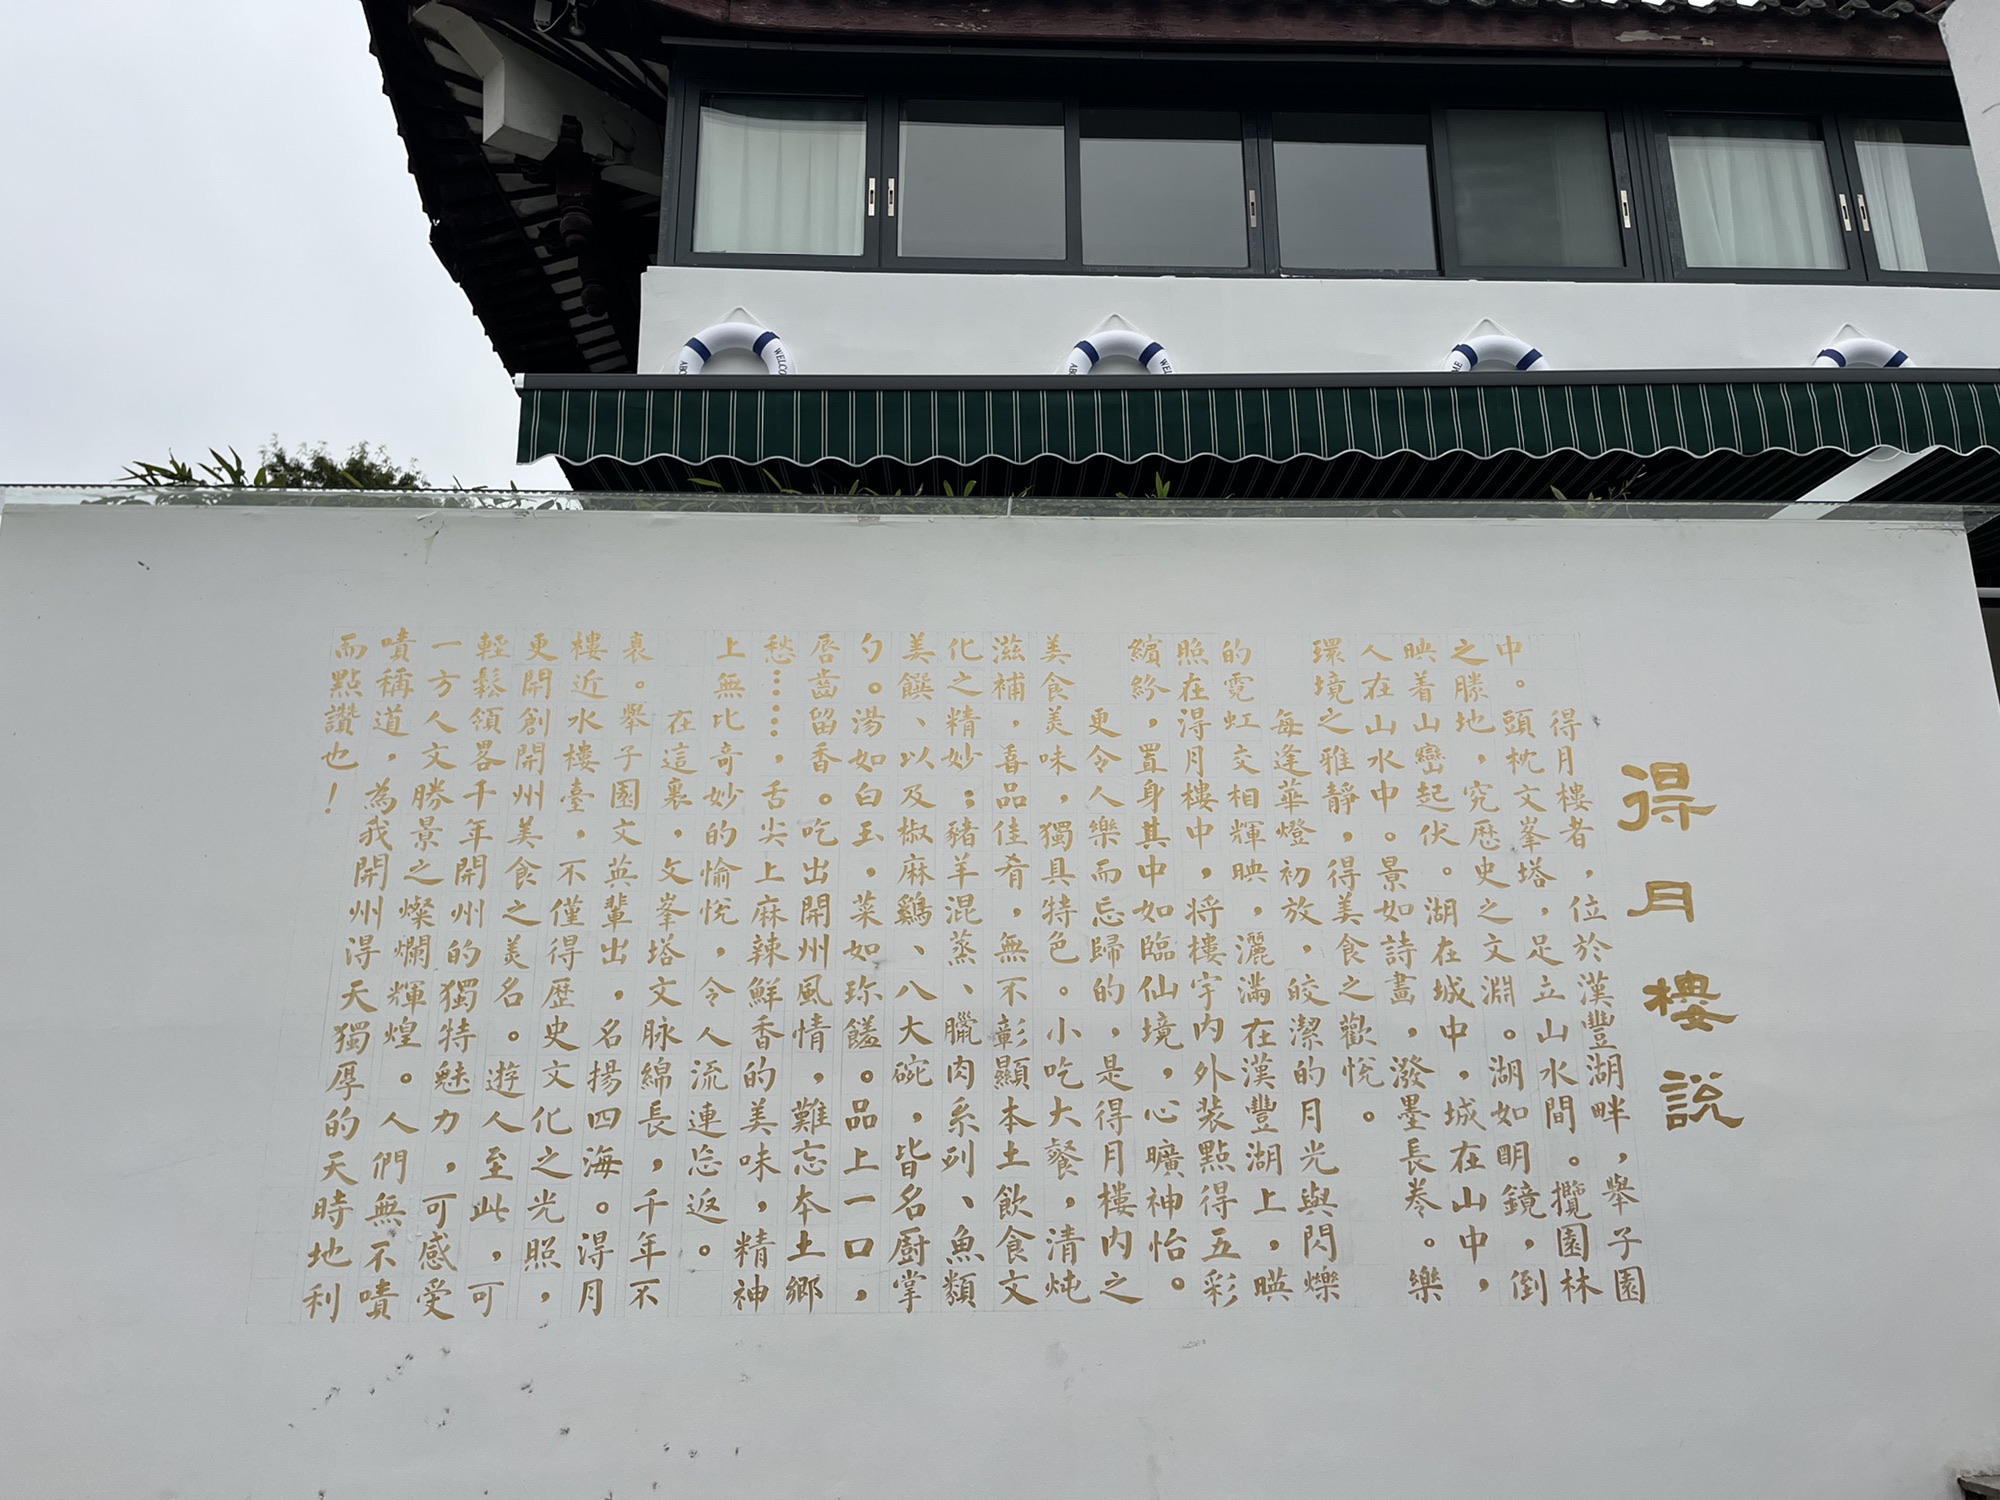 得月樓說
得月樓者，位於漢豐湖畔，舉子園
中。頭枕文峯塔，足立山水間。攬園林
之勝地，究歷史之文淵。湖如明鏡，倒
映着山巒起伏。湖在城中，城在山中，
人在山水中。景如詩畫，潑墨長卷。樂
環境之雅靜，得美食之歡悅。
每逢華燈初放，皎潔的月光與閃爍
的霓虹交相輝映，灑滿在漢豐湖上，暎
照在得月樓中，將樓宇內外裝點得五彩
繽紛，置身其中如臨仙境，心曠神怡。
更令人樂而忘歸的，是得月樓內之
美食美味，獨具特色。小吃大餐，清炖
滋補，善品佳肴，無不彰顯本土飲食文
化之精妙；豬羊混蒸、臘肉系列、魚類
美饌、以及椒麻鷄、八大碗，皆名廚掌
勺。湯如白玉，菜如珍饈。品上一口，
唇齒留香。吃出開州風情，難忘本土鄉
愁……，舌尖上麻辣鮮香的美味，精神
上無比奇妙的愉悅，令人流連忘返。
在這裏，文峯塔文脉綿長，千年不
衰。舉子園文英輩出，名揚四海。得月
樓近水樓臺，不僅得歷史文化之光照，
更開創開州美食之美名。遊人至此，可
輕鬆領畧千年開州的獨特魅力，可感受
一方人文勝景之燦爛輝煌。人們無不嘖
嘖稱道，為我開州得天獨厚的天時地利
而點讚也！